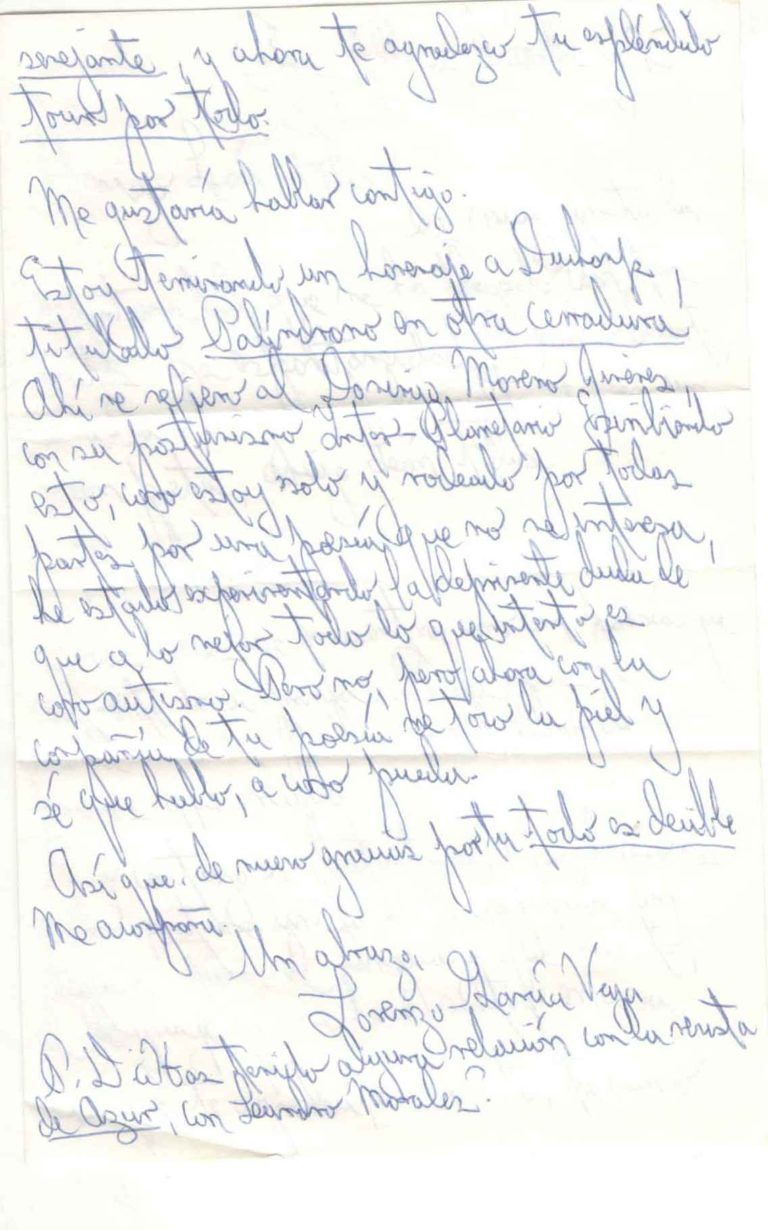 semejante, y ahora te agradezco tu espléndido
tour por todo.
Me gustaría hablar contigo.
Estoy terminando un homenaje a Duchamp,
titulado Palíndromo en otra cerradura.
Ahí me refiero al Domingo Moreno Jimenes,
con su postumismo Inter-Planetario. Escribiendo
esto, como estoy solo y rodeado por todas
partes por una poesía que no me interesa,
he estado experimentando la deprimente duda de
que a lo mejor todo lo que intento es
como autismo. Pero no, pero ahora con la
compañía de tu poesía me toco la piel y
sé que hablo, a como pueda.
Así que, de nuevo gracias por tu todo es decible
Me acompaña.
Un abrazo,
Lorenzo García Vega
P.D. ¿Has tenido alguna relación con la revista
de Azur, con Leandro Morales?